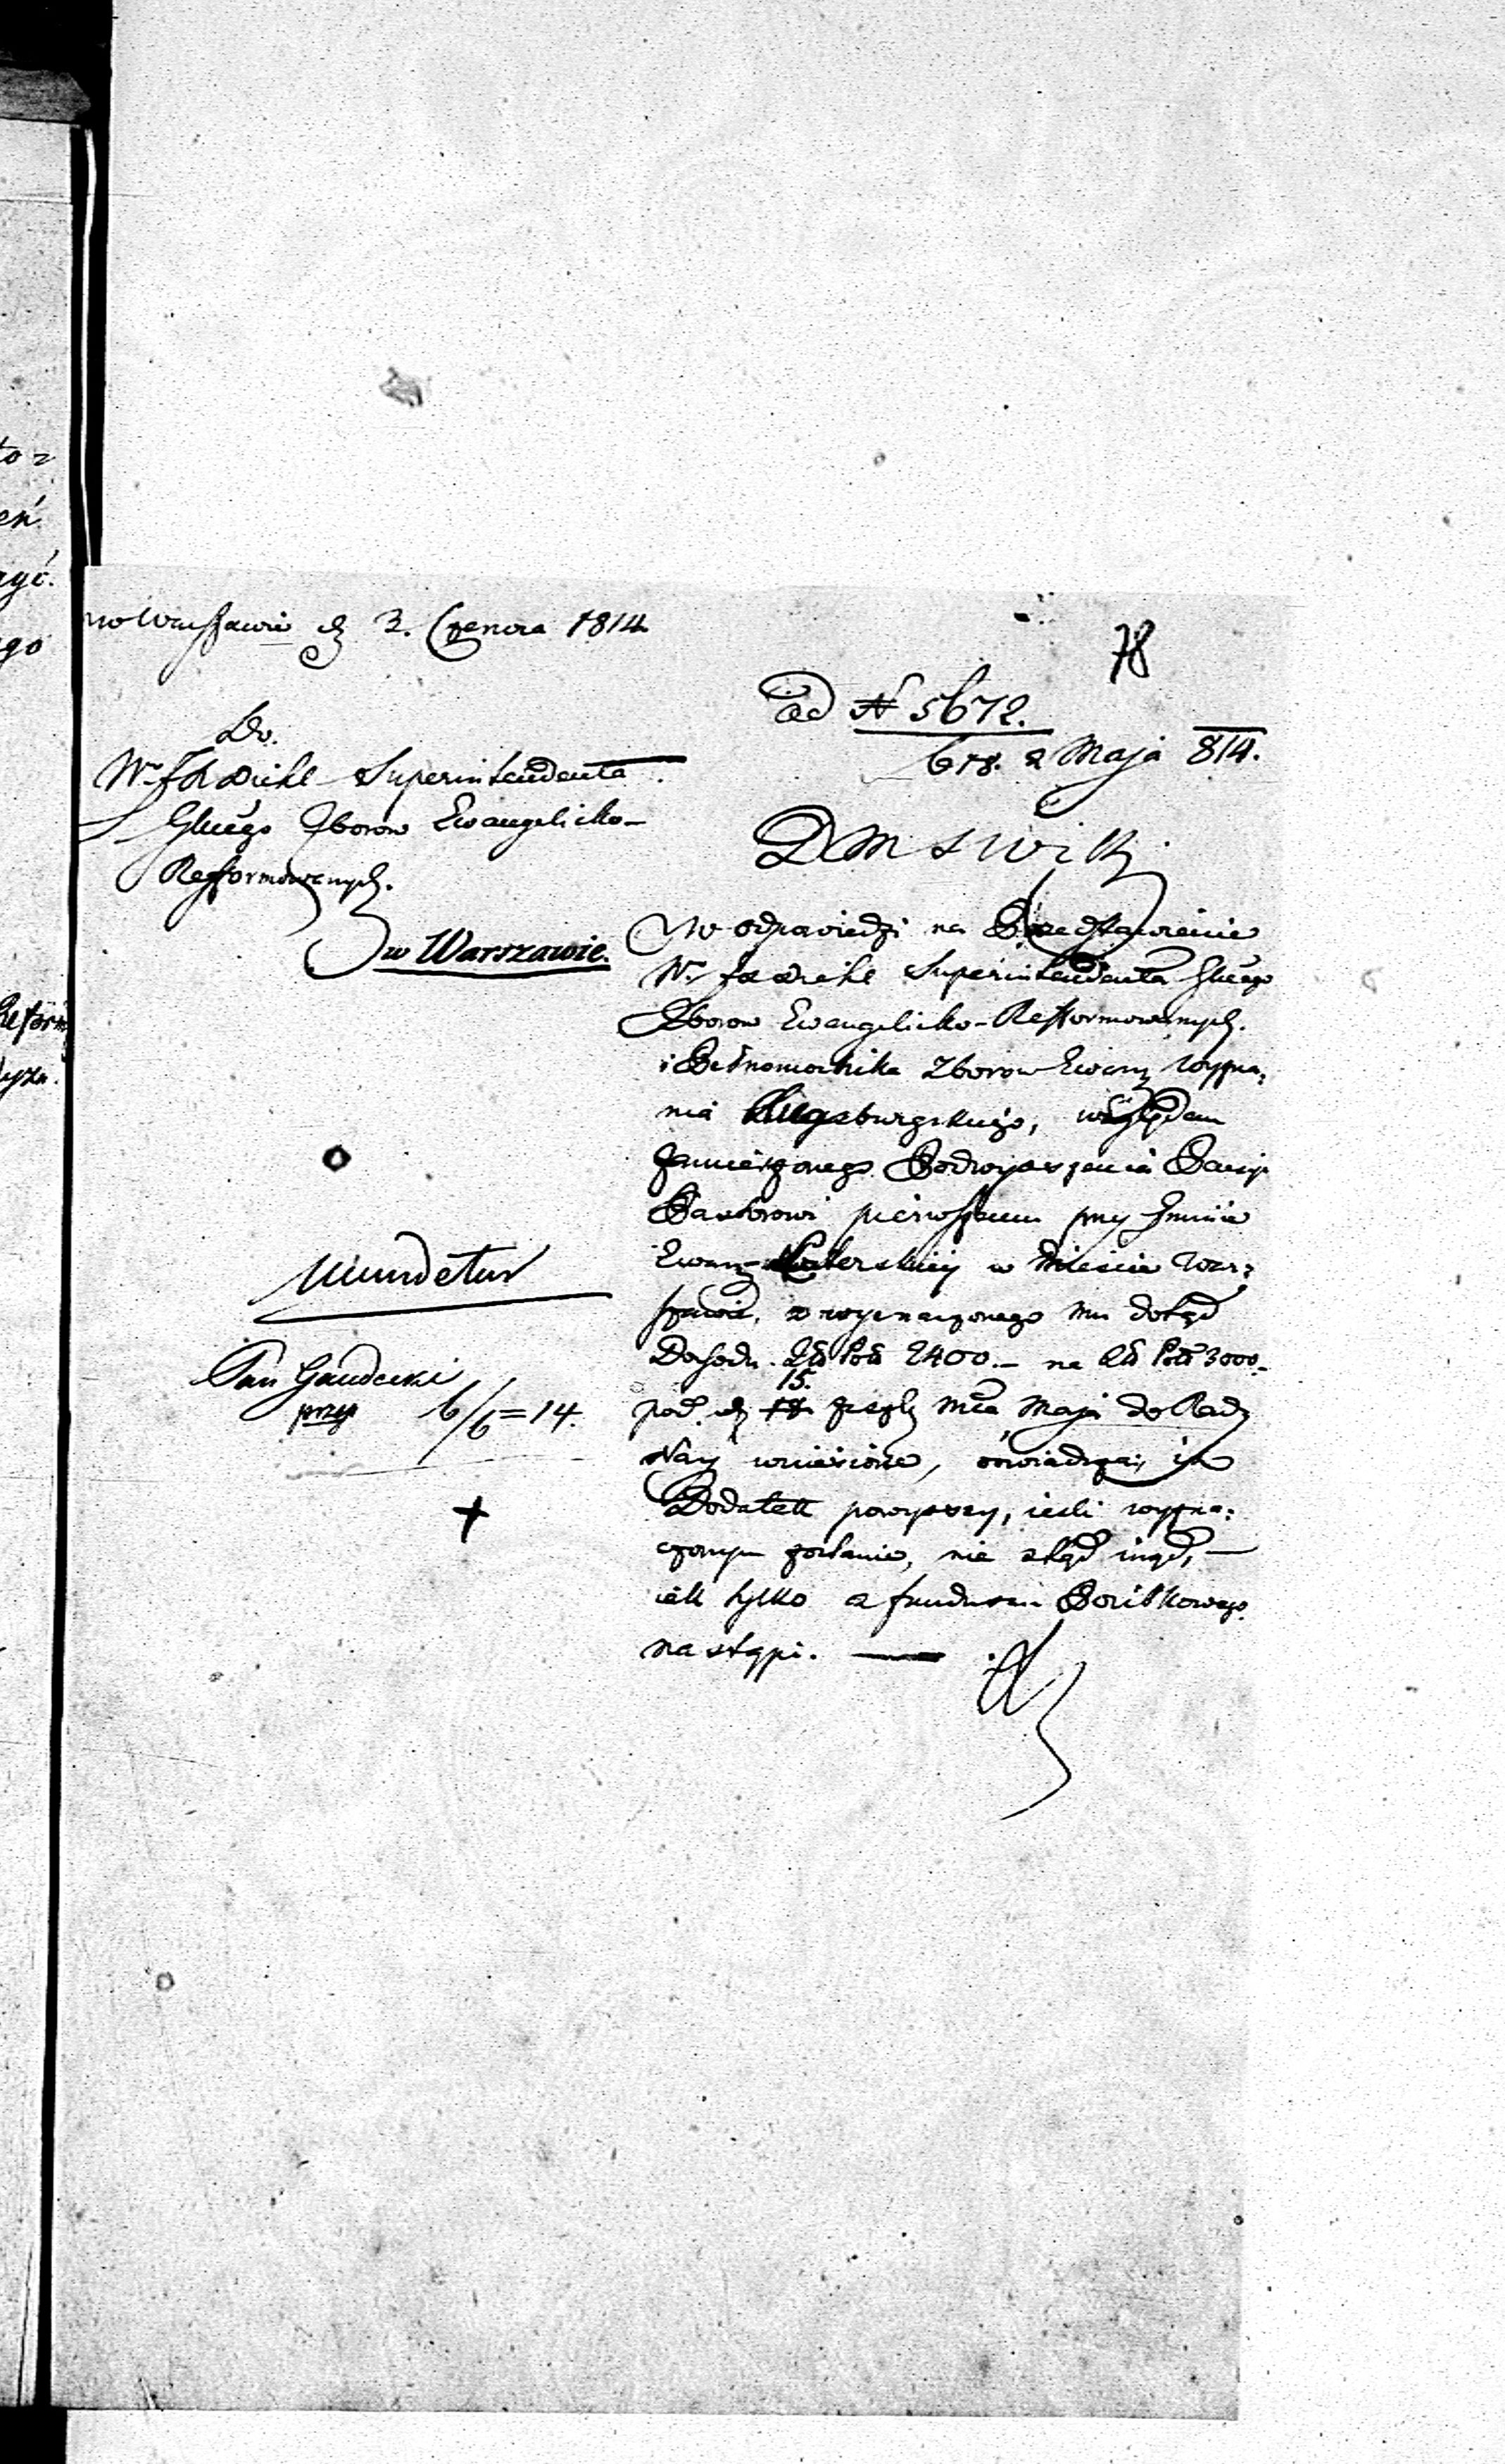 w Warszawie d. 3. Czerwca 1814
78
ad N 5672.
678. z Maja 814.
Do.
W. Diehl Superintendenta
Głneg̃o Zborow Ewangelicko-
Refformowanych.
w Warszawie.
D M S W i R
W odpowiedzi na Przedstawienie
W. Diehl Superintendenta Głnego
Zborow Ewangelicko-Refformowanych.
i Pełnomocnika Zborow Ewang. wyzna-
nia Augsburgskiego, względem
zamierzonego Podwyższenia Pensyi
Pastorowi pierwszemu przy Gminie
Ewang. Luterskiey w Mieście War-
szawie, z wyznaczonego mu dotąd
Dochodu Zł Pol 2400.- na Zł Pol 3000.-
15.
pod d. 18 zeszł. mca Maja do Rady
Nay wniesione, oswiadcza, iż
Dodatek powyższy, iesli wyzna-
czonym zostanie, nie skąd inąd,
iak tylko z funduszu Kościelnego
nastąpi.
Mundetur
Pan Gaudecki
przy 6/6=14.